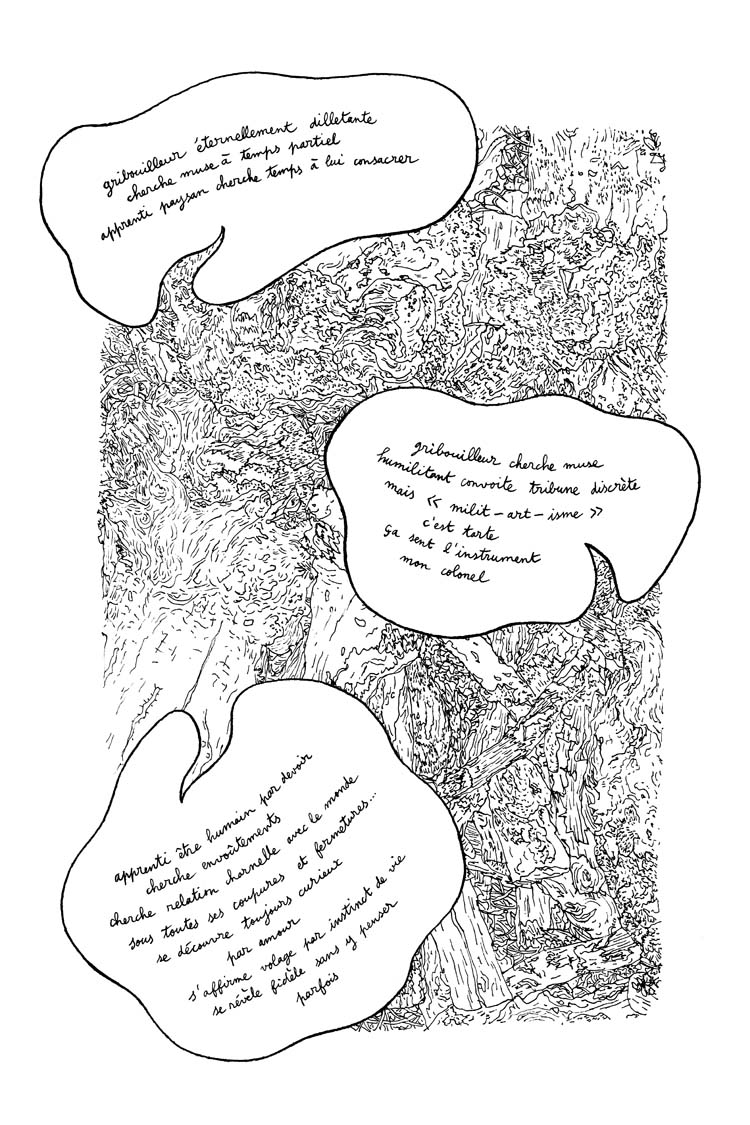 gribouilleur éternellement dilletante
cherche muse à temps partiel
apprenti paysan cherche temps à lui consacrer
gribouilleur cherche muse
humilitant convoite tribune discrète
mais « milit-art-isme »
c'est tarte
ça sent l'instrument
mon colonel
apprenti être humain par devoir
cherche envoûtements
cherche relation charnelle avec le monde
sous toutes ses coupures et fermetures...
se découvre toujours curieux
par amour
s'affirme volage par instinct de vie
se révèle fidèle sans y penser
parfois